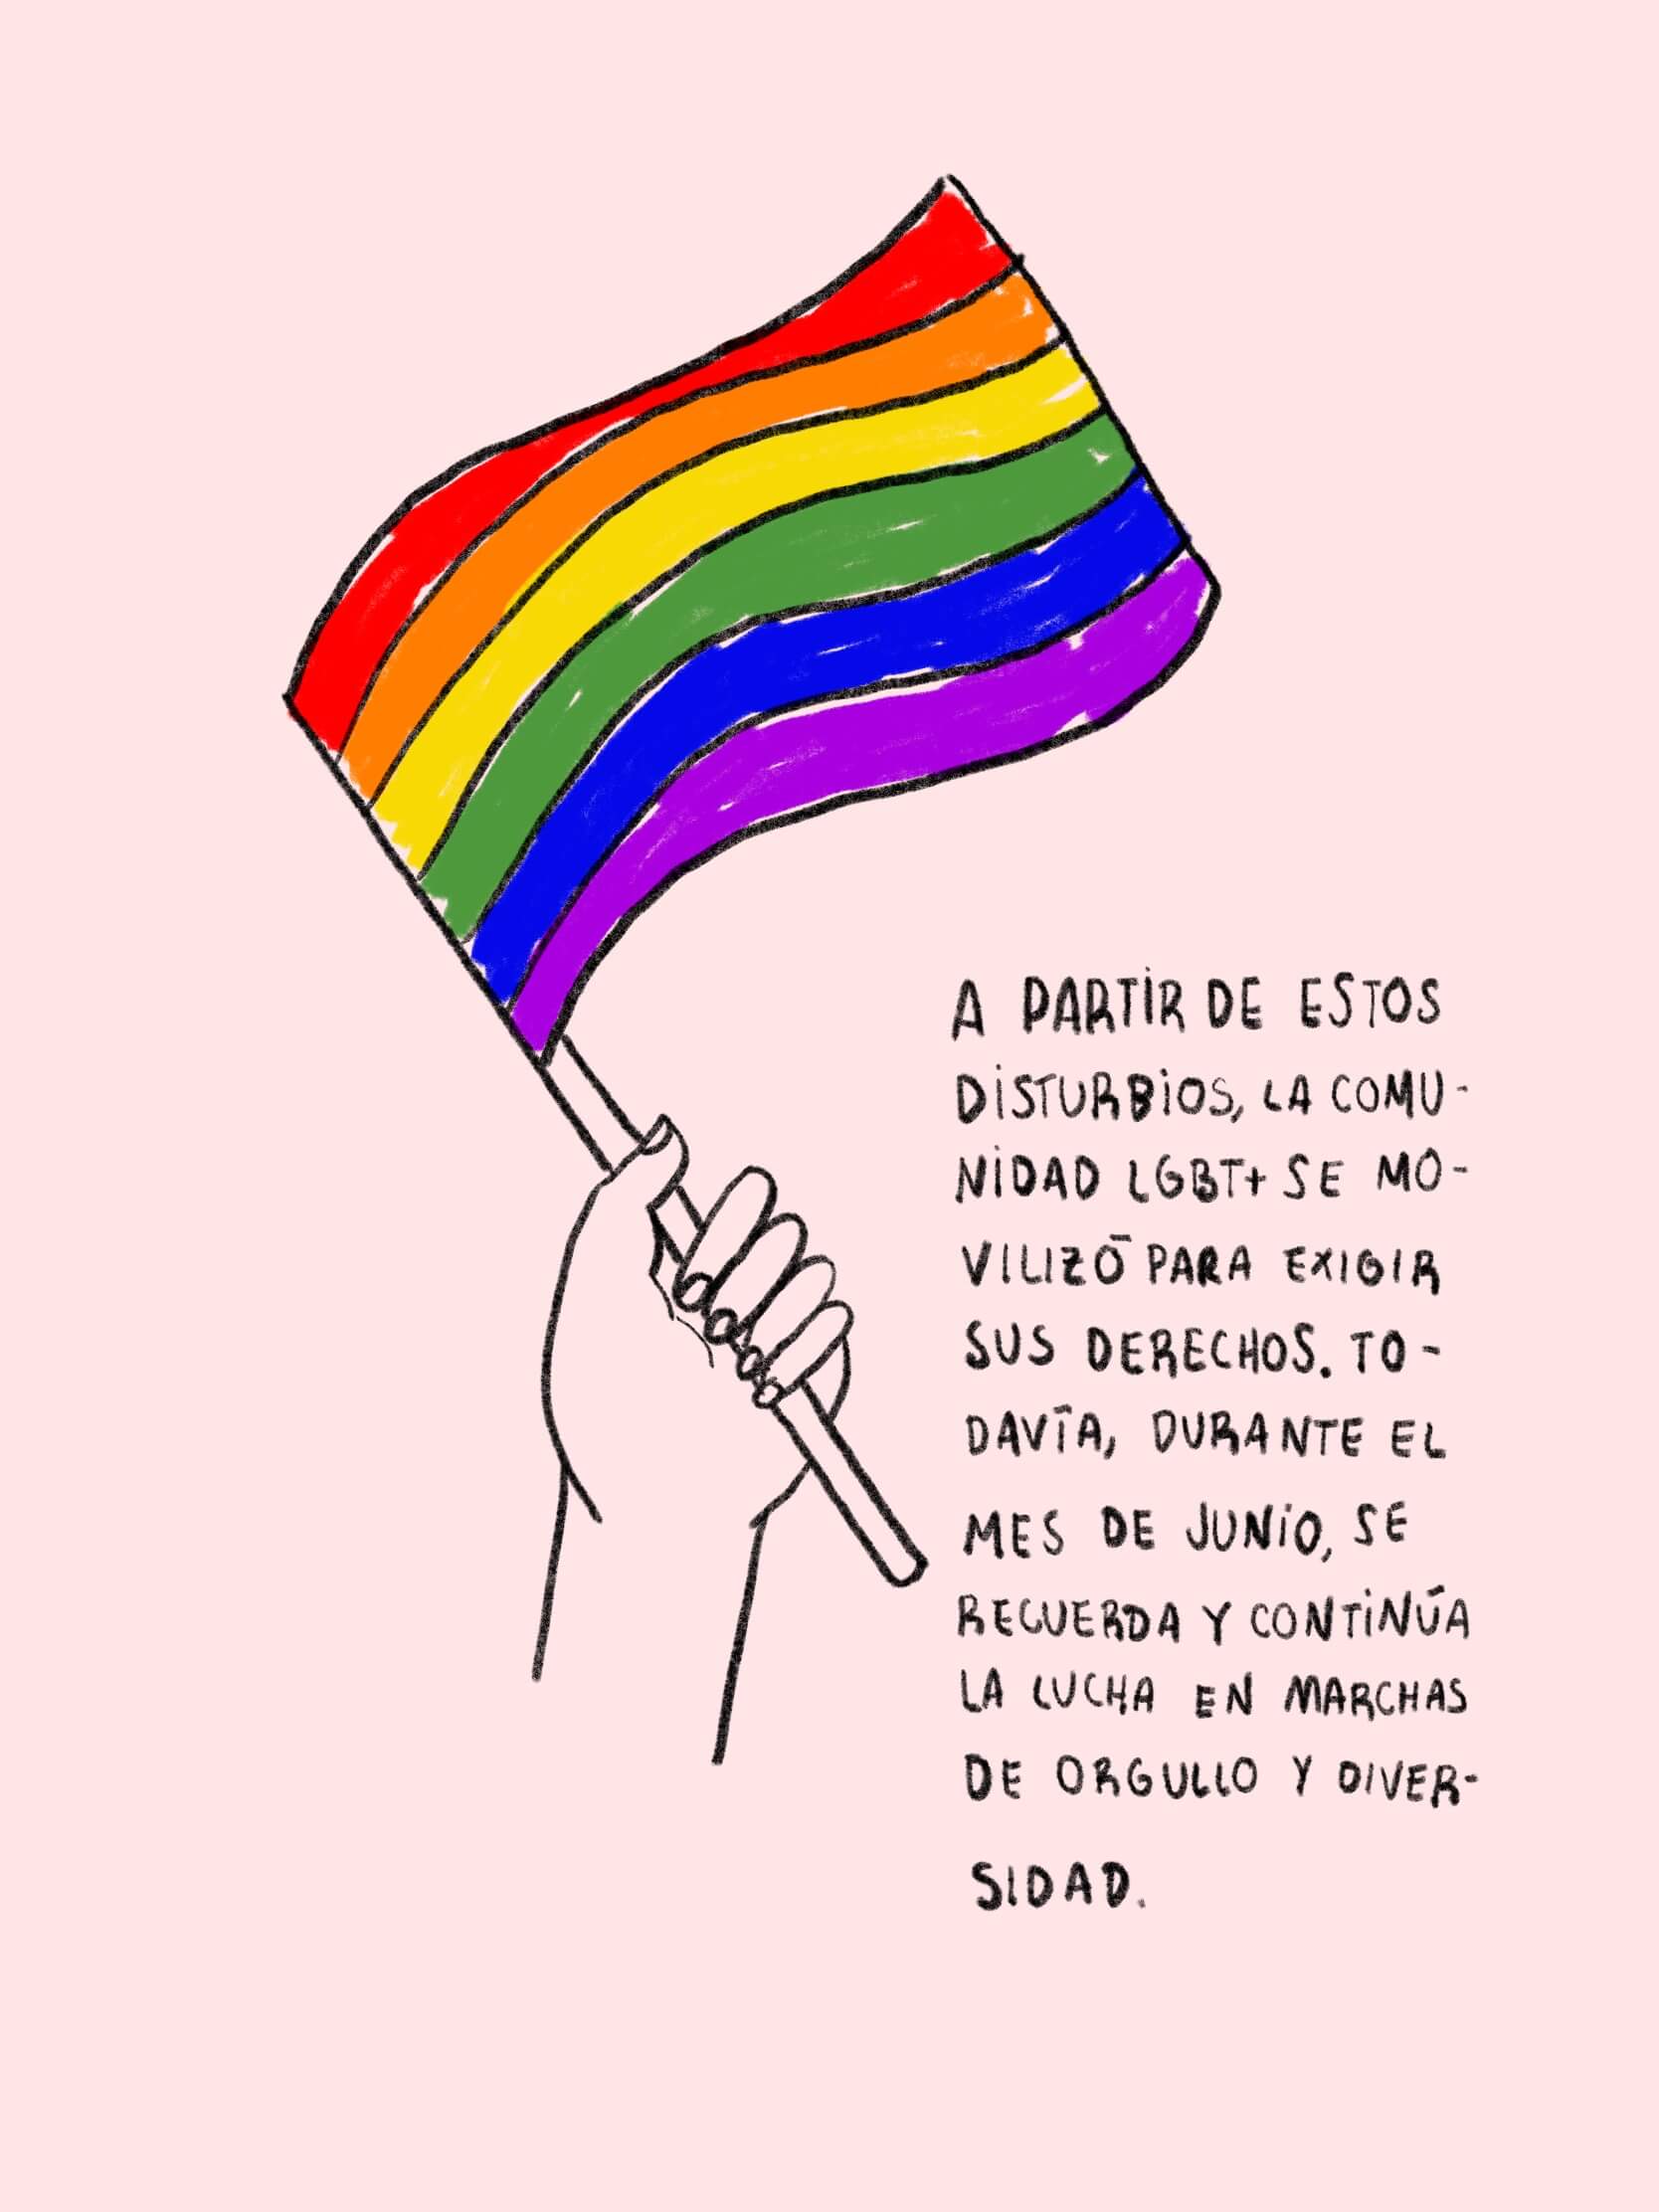 A PARTIR DE ESTOS
DISTURBIOS, LA COMU-
NIDAD LGBT+ SE MO-
VILIZÓ PARA EXIGIR
SUS DERECHOS. TO-
DAVÍA, DURANTE EL
MES DE JUNIO, SE
RECUERDA Y CONTINÚA
LA LUCHA EN MARCHAS
DE ORGULLO Y DIVER-
SIDAD.